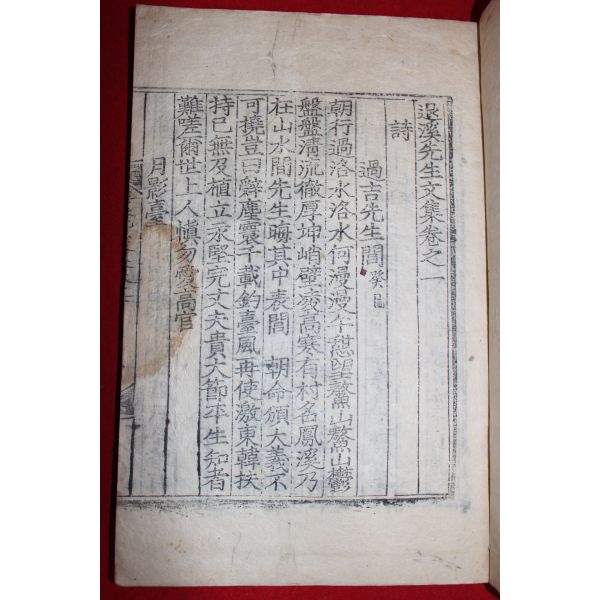 退溪先生文集卷之一
詩
過吉先生閭 癸巳
朝行過洛水洛水何漫漫午憇望鰲山鰲山鬱
盤盤淸流徹厚坤峭壁凌高寒有村名鳳溪乃
在山水間先生晦其中表閭 朝命頒大義不
可撓豈曰辭塵寰千載釣臺風再使激東韓扶
持已無及植立永堅完丈夫貴大節平生知者
難嗟爾世上人愼勿愛高官
月影臺